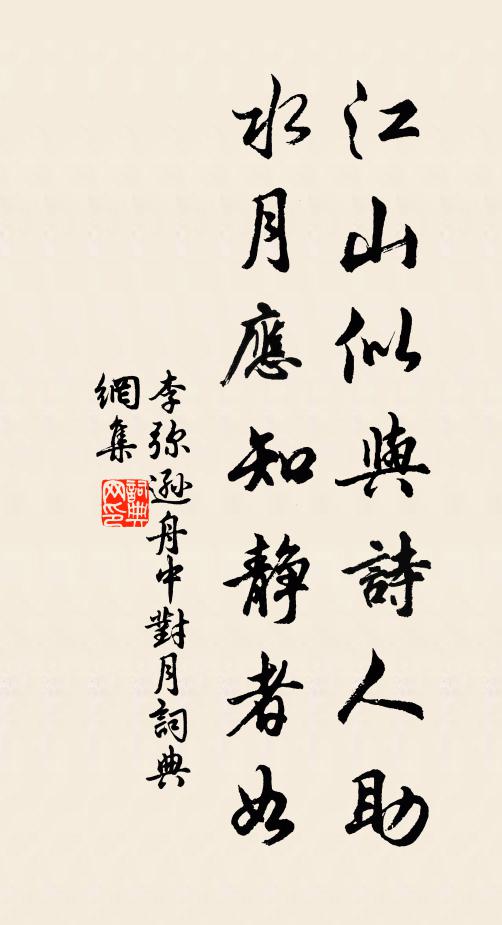 江山似與詩人助
水月應知靜者如
李弥遜舟中對月詞典
網集
詞典
网印